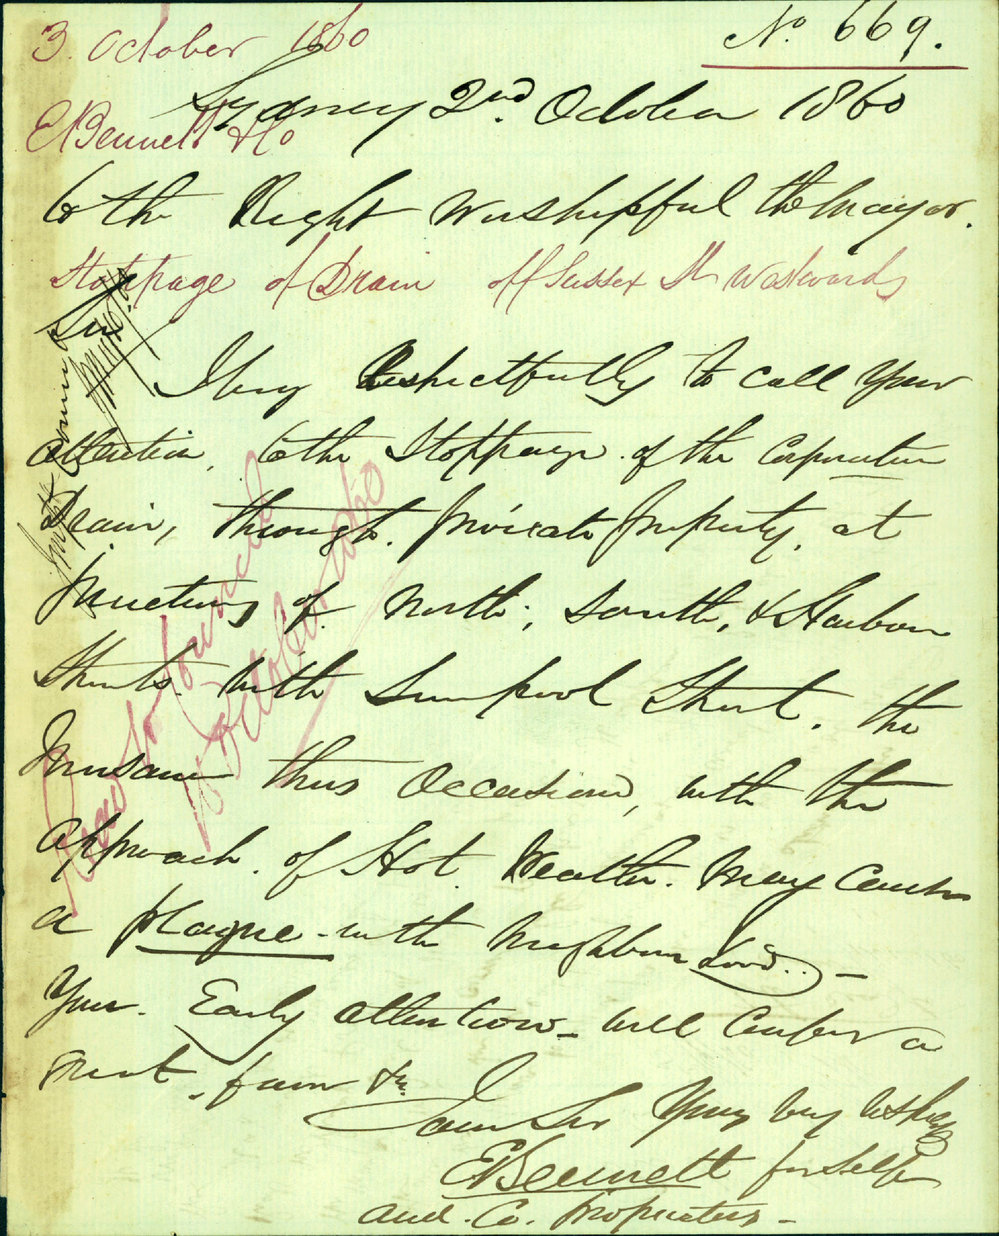 3. October 1860
No. 669.
Sydney 2nd. October 1860
E Bennett & Co
To the Right Worshipful the Mayor.
Stoppage of Drain off Sussex St Westwards
Sir
I beg Respectfully to call your
attention, to the Stoppage of the Corporation
Drain, through. private property, at
junction of. North, South, & Harbour
Streets. with Liverpool Street, the
Nuisance thus Occasioned, with the
approach. of Hot. Weather. May cause
a plague - in the Neighbourhood.. -
Your. Early attention - will Confer a
great, favor &c.
I am Sir Your very
E Bennett for self
and. Co. Proprietors -
Read to Council
October 1860